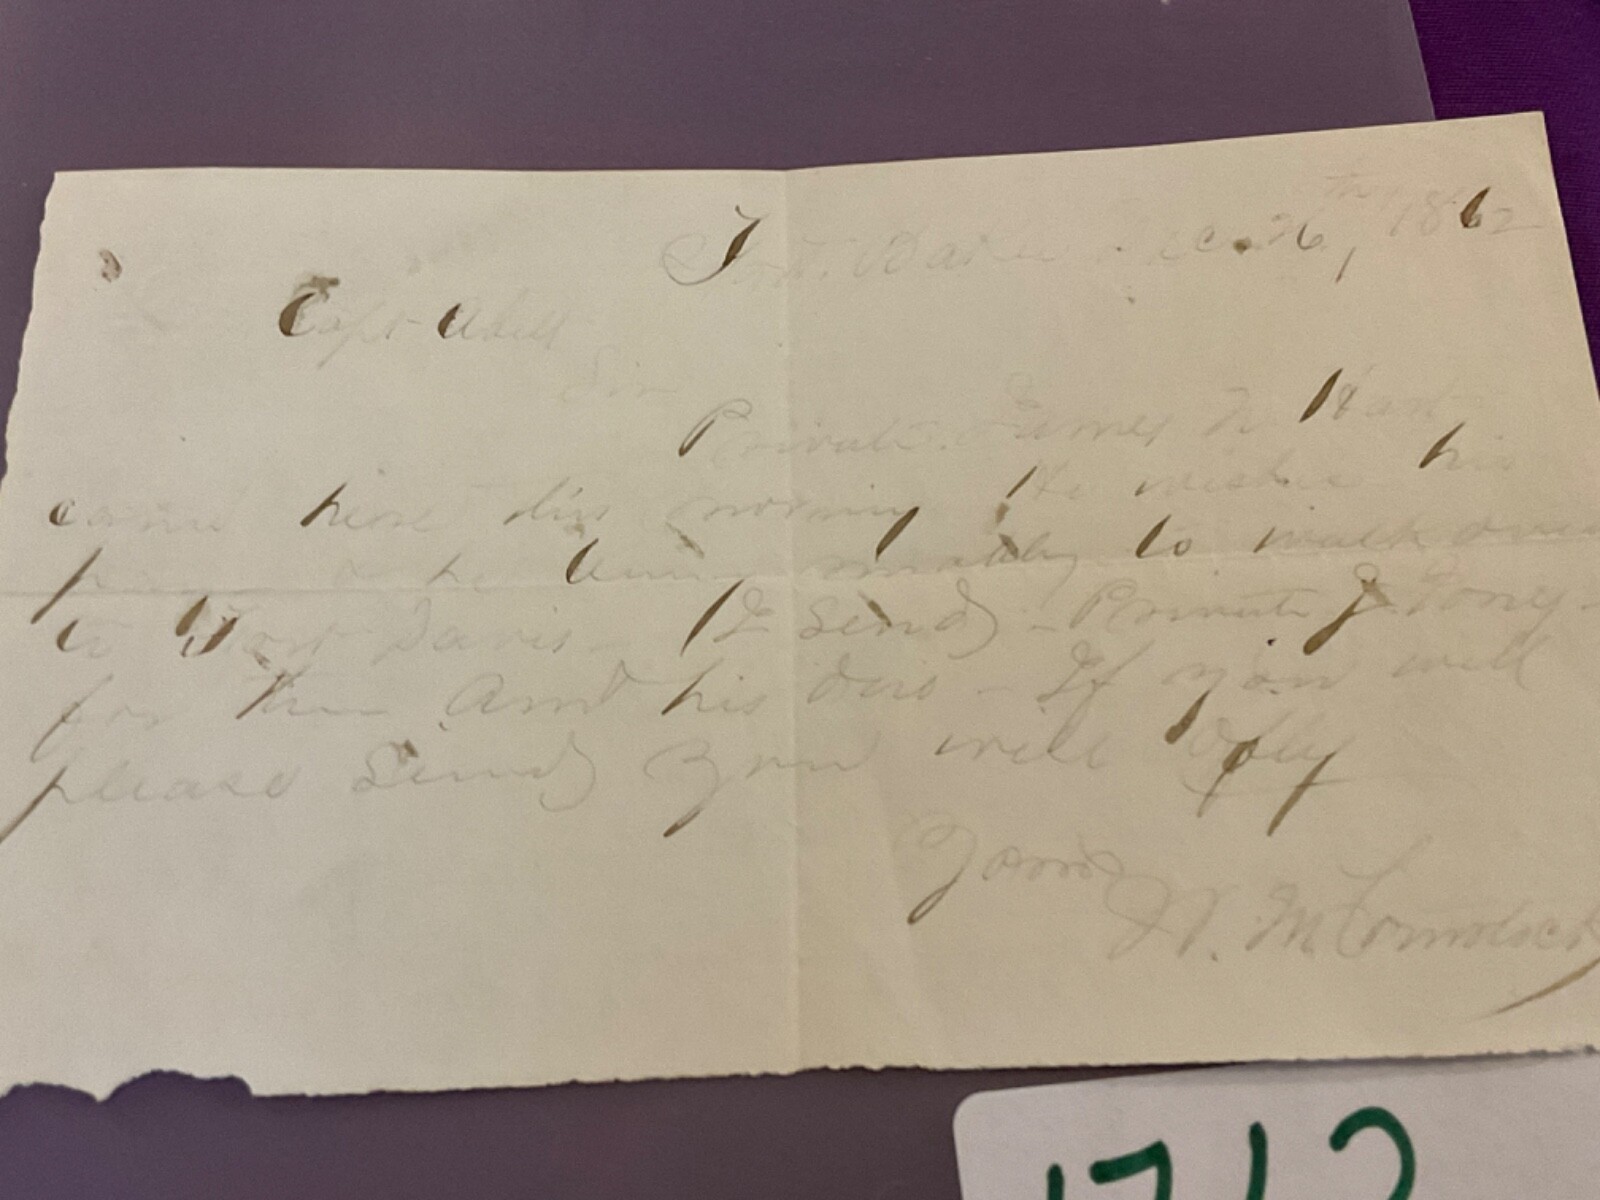 Fort Baker Dec. 26th, 1862
Capt Abell
Sir
Private James W Hart
came here this morning He wishes his
& he being unable to walk over
to Fort Davis - I Send - Private J. Toney -
for them And his duo - If you will
please Send you will Obly
Yours
W. M. Comstock
1712